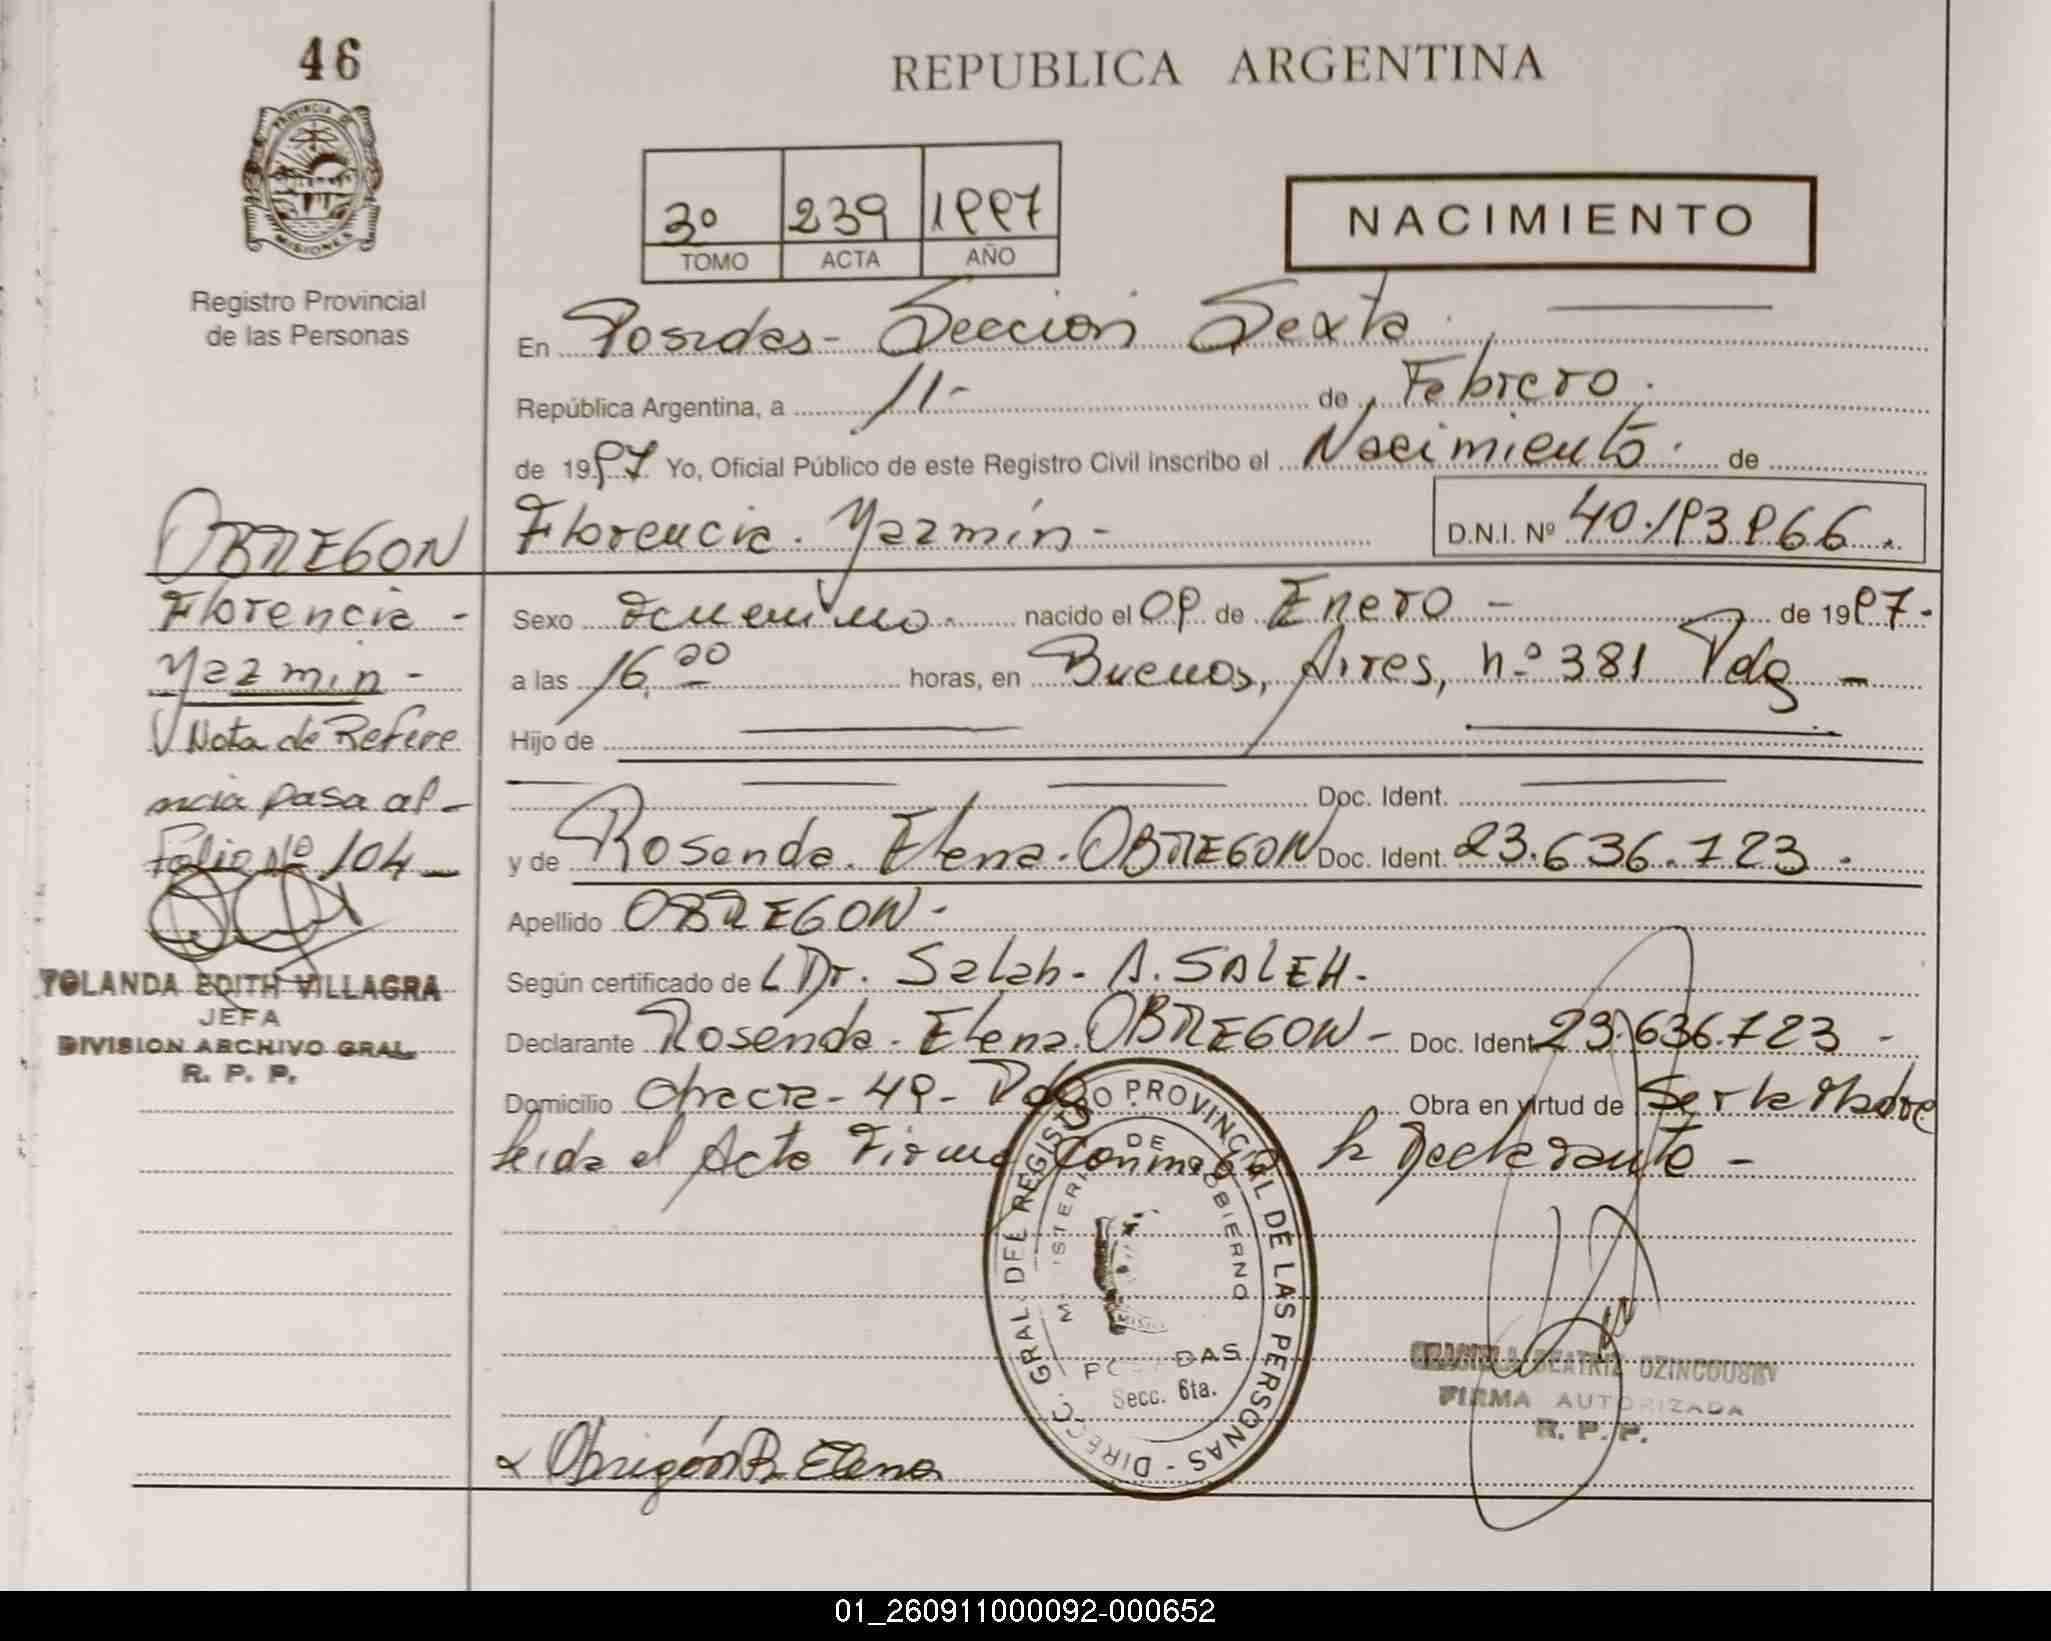 46
REPUBLICA ARGENTINA
PROVINCIA DE
MISIONES
3º 239 1997
TOMO ACTA AÑO
NACIMIENTO
Registro Provincial
de las Personas
En Posadas - Seccion Sexta.
República Argentina, a 11 - de Febrero.
de 1997. Yo, Oficial Público de este Registro Civil inscribo el Nacimiento. de
Florencia. Yazmín - D.N.I. Nº 40.193.966.
OBREGON
Florencia -
Yazmin -
Nota de Refere
ncia pasa al -
Folio Nº 104 -
YOLANDA EDITH VILLAGRA
JEFA
DIVISION ARCHIVO GRAL.
R. P. P.
Sexo Femenino. nacido el 09 de Enero - de 1997.-
a las 16, horas, en Buenos, Aires, nº 381 Pdas -
Hijo de
Doc. Ident.
y de Rosenda. Elena. OBREGON Doc. Ident. 23.636.723.
Apellido OBREGON -
Según certificado de L Dr. Salah - A. SALEH.
Declarante Rosenda. Elena. OBREGON - Doc. Ident 23.636.723 -
Domicilio - 49 - Obra en virtud de Ser la Madre
leida el Acta Firma Conmigo la Declarante -
DIRECC. GRAL. DEL REGISTRO PROVINCIAL DE LAS PERSONAS -
MINISTERIO DE GOBIERNO
POSADAS
Secc. 6ta.
BEATRIZ
FIRMA AUTORIZADA
R. P. P.
Obregón R. Elena
01_260911000092-000652